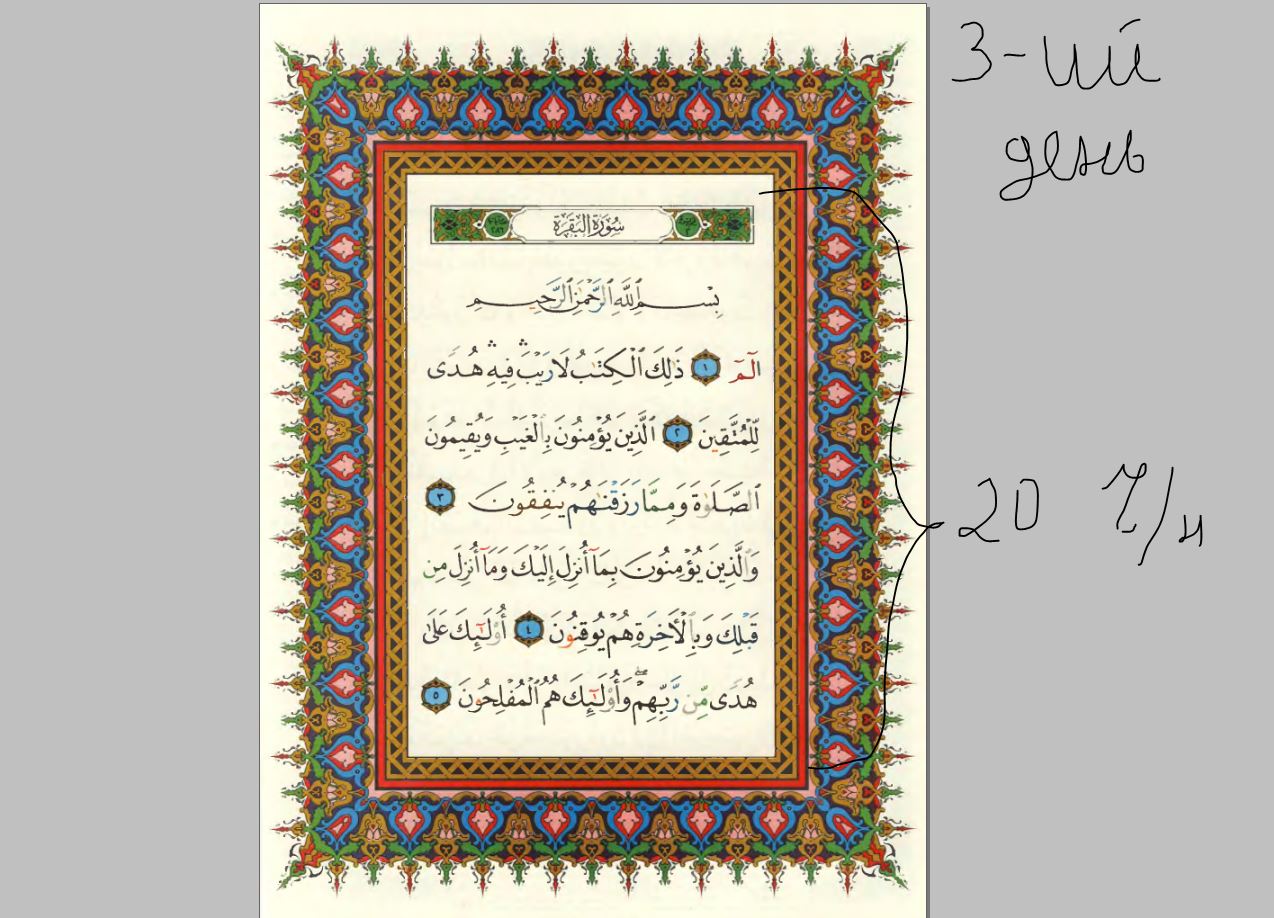 3-ий
день
سُورَةُ البَقَرَةِ
بِسْمِ ٱللَّهِ ٱلرَّحْمَٰنِ ٱلرَّحِيمِ
الٓمٓ ١ ذَٰلِكَ ٱلْكِتَٰبُ لَا رَيْبَ ۛ فِيهِ ۛ هُدًى
لِّلْمُتَّقِينَ ٢ ٱلَّذِينَ يُؤْمِنُونَ بِٱلْغَيْبِ وَيُقِيمُونَ
ٱلصَّلَوٰةَ وَمِمَّا رَزَقْنَٰهُمْ يُنفِقُونَ ٣
20 ч/и
وَٱلَّذِينَ يُؤْمِنُونَ بِمَآ أُنزِلَ إِلَيْكَ وَمَآ أُنزِلَ مِن
قَبْلِكَ وَبِٱلْأَخِرَةِ هُمْ يُوقِنُونَ ٤ أُو۟لَٰٓئِكَ عَلَىٰ
هُدًى مِّن رَّبِّهِمْ ۖ وَأُو۟لَٰٓئِكَ هُمُ ٱلْمُفْلِحُونَ ٥